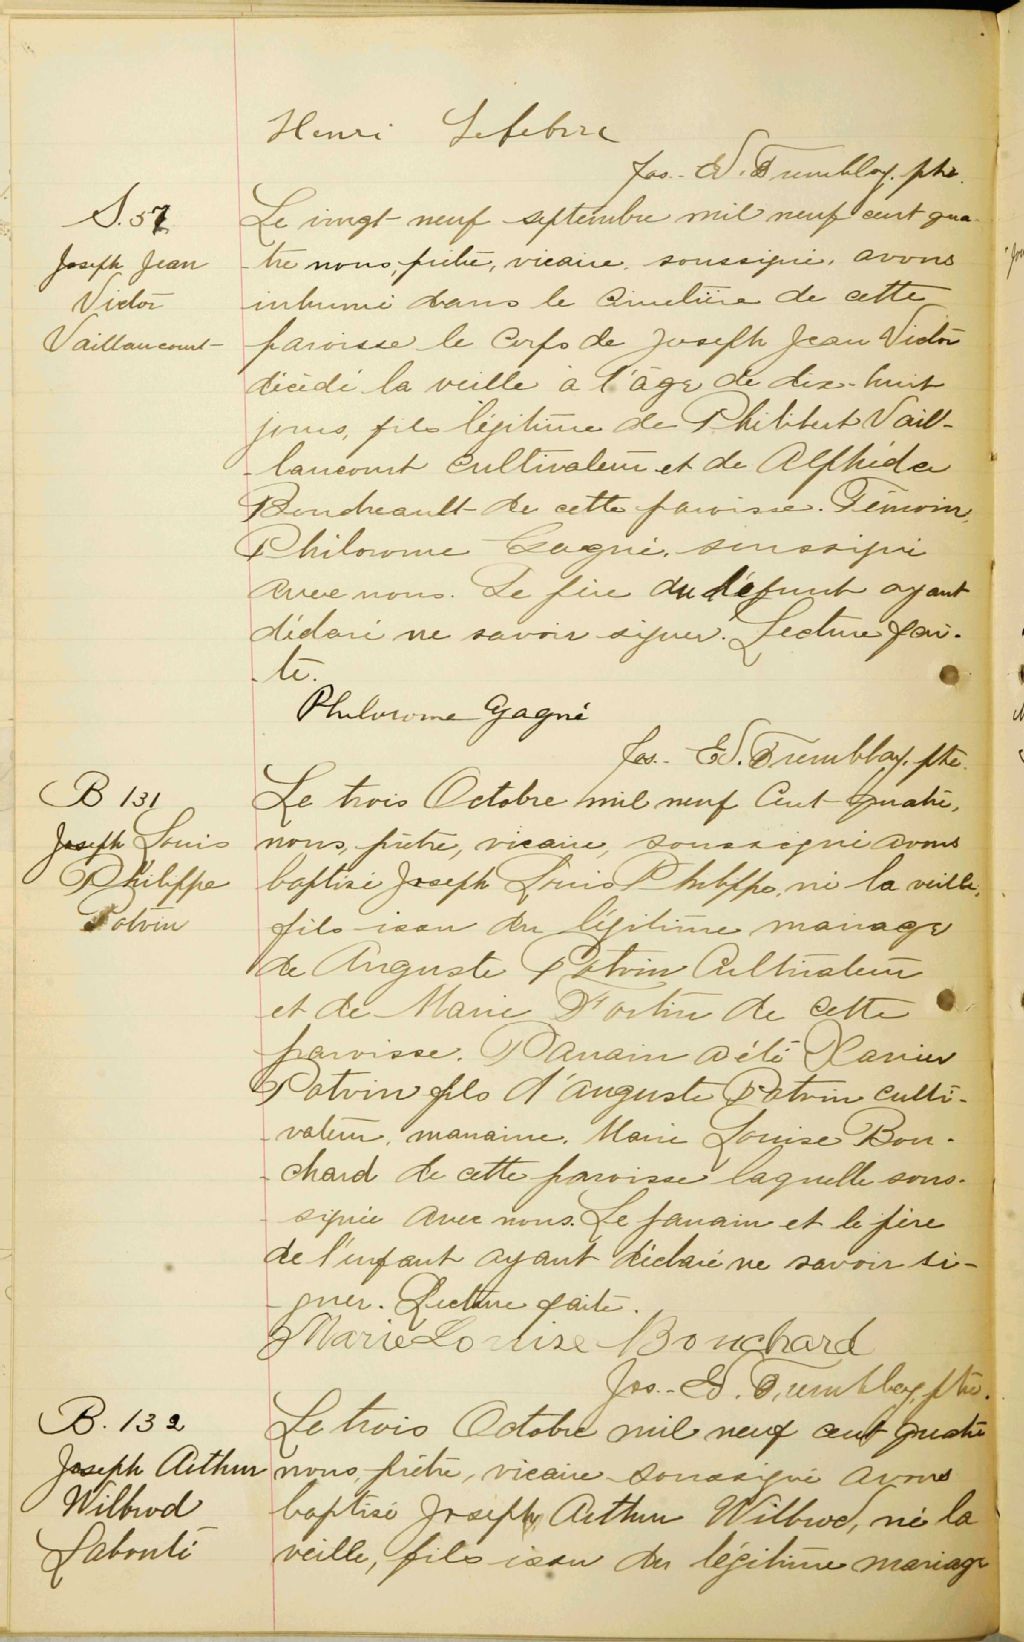 Henri Lefebvre
Jos. Ed. Tremblay. ptre.
S. 57
Joseph Jean
Victor
Vaillancourt
Le vingt neuf septembre mil neuf cent qua-
tre nous, prêtre, vicaire, soussigné, avons
inhumé dans le cimetière de cette
paroisse le corps de Joseph Jean Victor
décédé la veille à l'âge de dix-huit
jours, fils légitime de Philibert Vail-
-lancourt cultivateur et de Alphéda
Boudreault de cette paroisse. Témoin,
Philorome Gagné, soussigné
avec nous. Le père du défunt ayant
déclaré ne savoir signer. Lecture fai-
-te.
Philorome Gagné
Jos. Ed. Tremblay. ptre.
B 131
Joseph Louis
Philippe
Potvin
Le trois Octobre mil neuf cent quatre,
nous, prêtre, vicaire, soussigné avons
baptisé Joseph Louis Philippe, né la veille,
fils issu du légitime mariage
de Auguste Potvin Cultivateur
et de Marie Fortin de cette
paroisse. Parrain a été Xavier
Potvin fils d'Auguste Potvin culti-
-vateur, marraine, Marie Louise Bou-
-chard de cette paroisse laquelle sous-
-signée avec nous. Le parrain et le père
de l'enfant ayant déclaré ne savoir si-
-gner. Lecture faite.
Marie Louise Bouchard
Jos. Ed. Tremblay, ptre.
B. 132
Joseph Arthur
Wilbrod
Labonté
Le trois Octobre mil neuf cent quatre
nous, prêtre, vicaire soussigné avons
baptisé Joseph Arthur Wilbrod, né la
veille, fils issu du légitime mariage